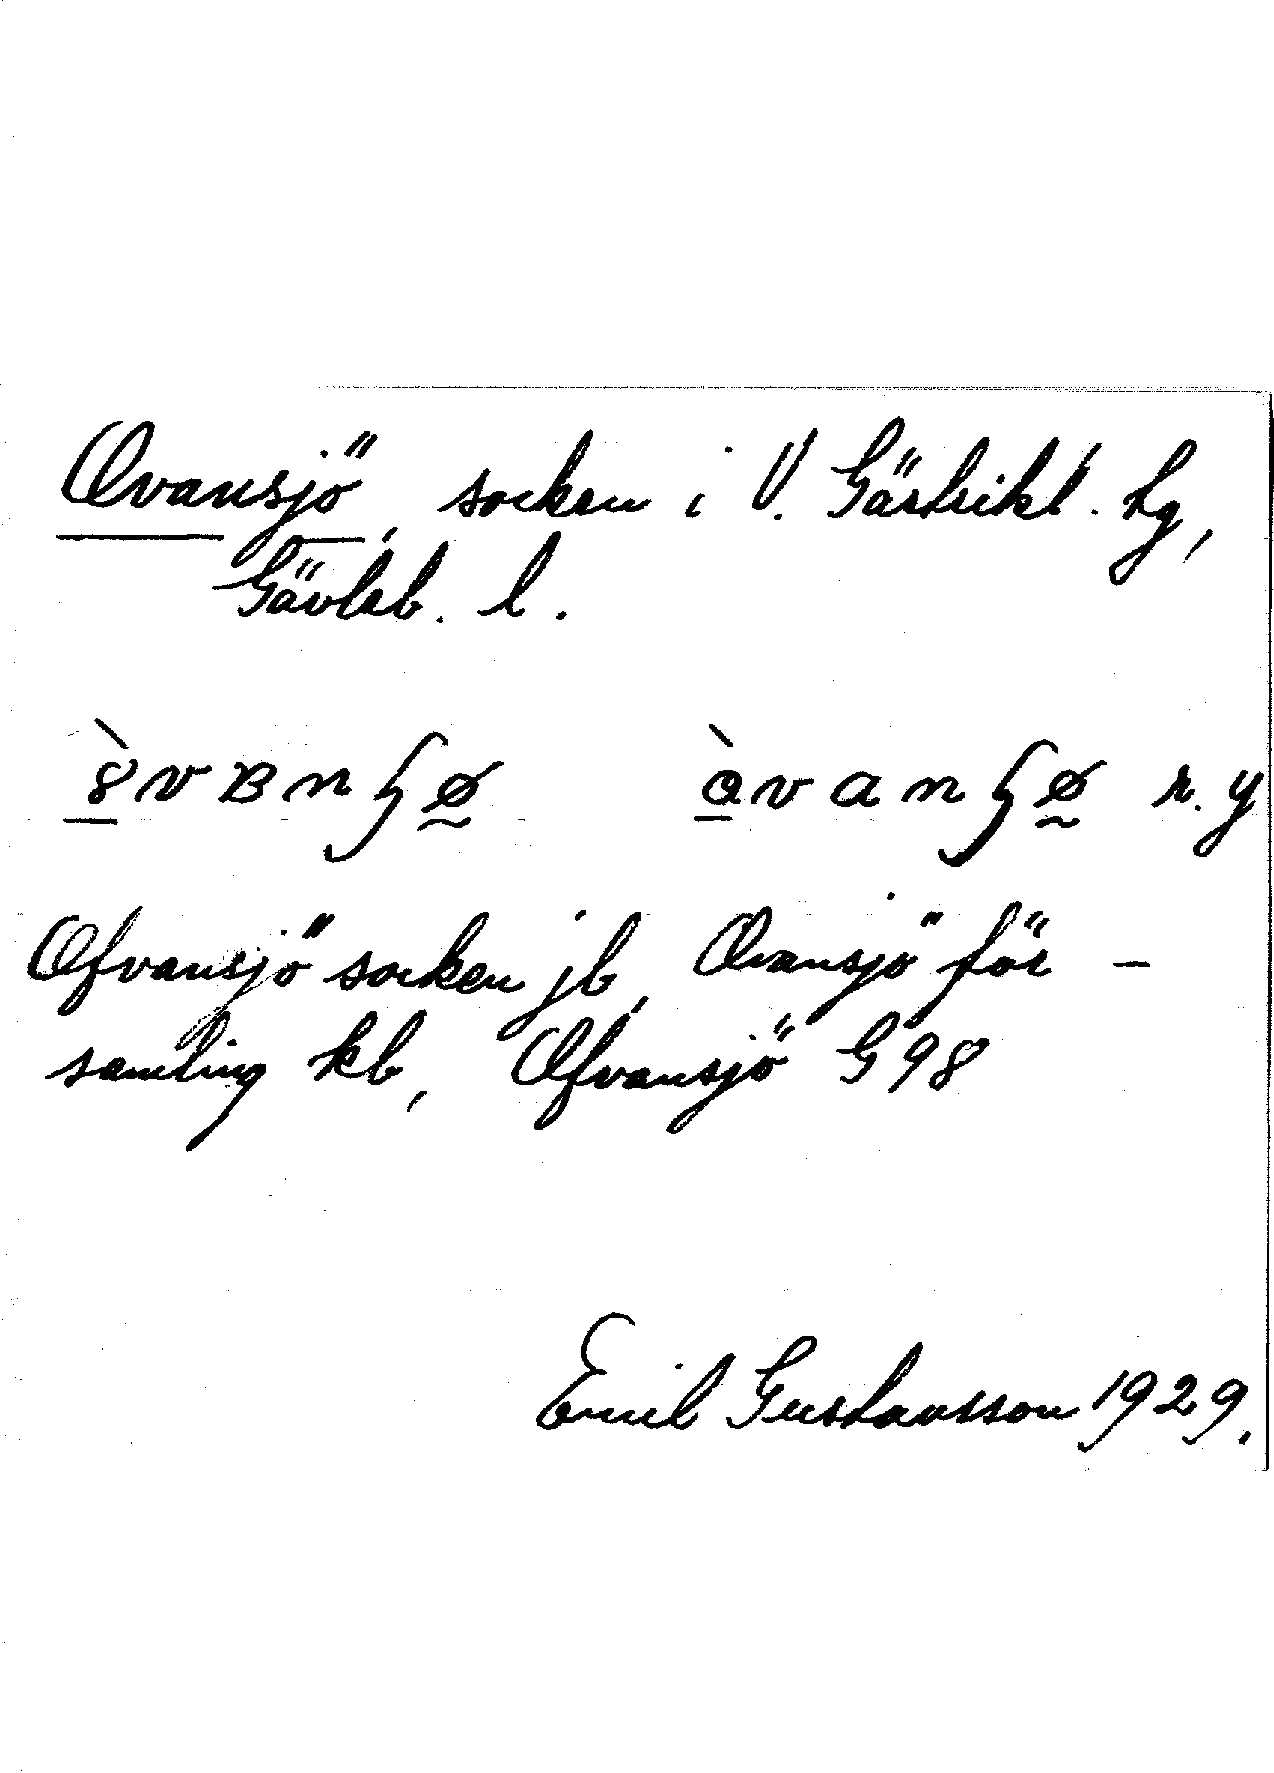 Ovansjö, socken i V. Gästrikl. hg,
Gävleb. l.
r. y
Ofvansjö socken jb, Ovansjö för-
samling kb, Ofvansjö G 98
Emil Gustavsson 1929.